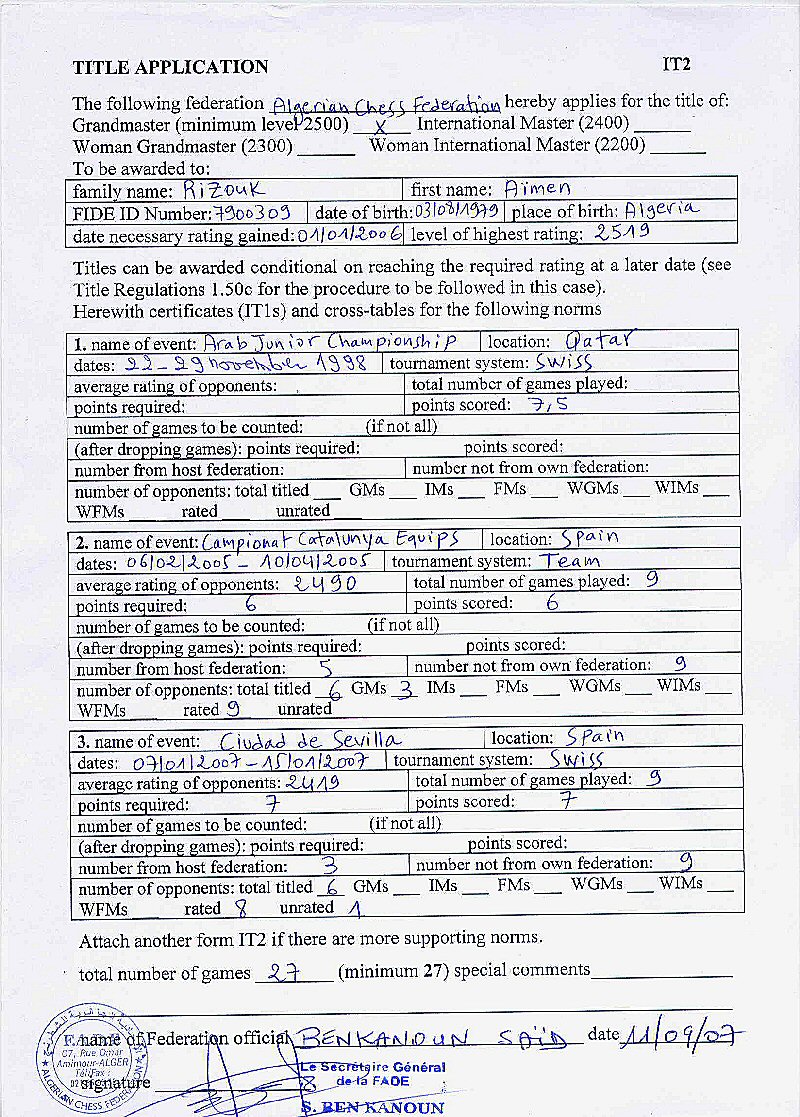 TITLE APPLICATION IT2
The following federation Algerian Chess Federation hereby applies for the title of:
Grandmaster (minimum level 2500) X International Master (2400) ______
Woman Grandmaster (2300) ______ Woman International Master (2200) ______
To be awarded to:
family name: Rizouk first name: Aimen
FIDE ID Number: 7900309 date of birth: 03/08/1979 place of birth: Algeria
date necessary rating gained: 01/01/2006 level of highest rating: 2519
Titles can be awarded conditional on reaching the required rating at a later date (see
Title Regulations 1.50c for the procedure to be followed in this case).
Herewith certificates (IT1s) and cross-tables for the following norms
1. name of event: Arab Junior Championship location: Qatar
dates: 22 - 29 november 1998 tournament system: Swiss
average rating of opponents: total number of games played:
points required: points scored: 7,5
number of games to be counted: (if not all)
(after dropping games): points required: points scored:
number from host federation: number not from own federation:
number of opponents: total titled ___ GMs ___ IMs ___ FMs ___ WGMs ___ WIMs ___
WFMs rated unrated
2. name of event: Campionat Catalunya Equips location: Spain
dates: 06/02/2005 - 10/04/2005 tournament system: Team
average rating of opponents: 2490 total number of games played: 9
points required: 6 points scored: 6
number of games to be counted: (if not all)
(after dropping games): points required: points scored:
number from host federation: 5 number not from own federation: 9
number of opponents: total titled 6 GMs 3 IMs ___ FMs ___ WGMs ___ WIMs ___
WFMs rated 9 unrated
3. name of event: Ciudad de Sevilla location: Spain
dates: 07/01/2007 - 15/01/2007 tournament system: Swiss
average rating of opponents: 2419 total number of games played: 9
points required: 7 points scored: 7
number of games to be counted: (if not all)
(after dropping games): points required: points scored:
number from host federation: 3 number not from own federation: 9
number of opponents: total titled 6 GMs ___ IMs ___ FMs ___ WGMs ___ WIMs ___
WFMs rated 8 unrated 1
Attach another form IT2 if there are more supporting norms.
total number of games 27 (minimum 27) special comments
name of Federation official BENKANOUN SAÏD date 11/09/07
67, Rue Omar
Amimour-ALGER
Tél/Fax :
signature
ALGERIAN CHESS FEDERATION
Le Secrétaire Général
de la FADE
S. BEN KANOUN